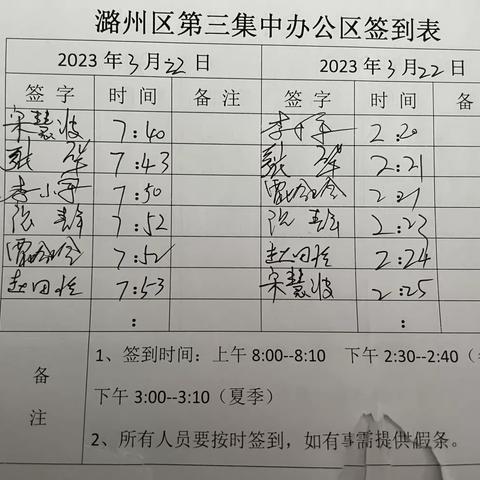 潞州区第三集中办公区签到表
2023 年 3 月 22 日 2023 年 3 月 22 日
签 字 时 间 备 注 签 字 时 间 备
宋慧波 7:40 李小平 2:20
张 7:43 张 2:21
李小平 7:50 2:21
张 7:52 张 2:23
7:52 赵田 2:24
赵田 7:53 宋慧波 2:25
: :
备 注
1、签到时间：上午 8:00--8:10 下午 2:30--2:40（
下午 3:00--3:10（夏季）
2、所有人员要按时签到，如有事需提供假条。